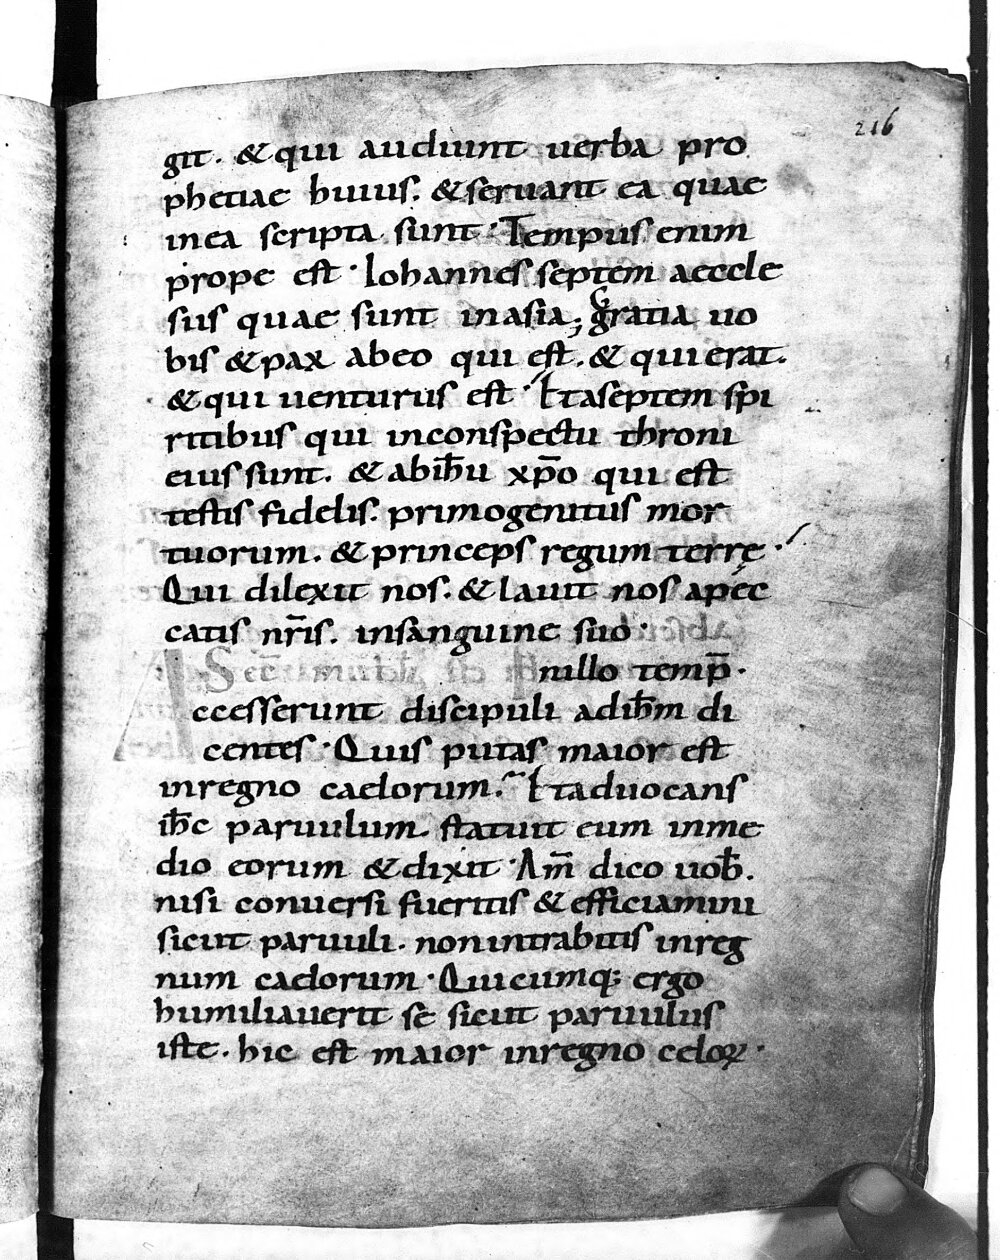 216
git. & qui audiunt uerba pro
phetiae huius. & seruant ea quae
inea scripta sunt. Tempus enim
prope est. Iohannes septem aeccle
siis quae sunt inasia; gratia uo
bis & pax abeo qui est. & qui erat.
& qui uenturus est. Et aseptem spi
ritibus qui inconspectu throni
eius sunt. & ab ih̅u xp̅o qui est
testis fidelis. primogenitus mor
tuorum. & princeps regum terrę.
Qui dilexit nos. & lauit nos apec
catis nr̅is. insanguine suo.
Sec̅dum
nillo temp̅.
A
ccesserunt discipuli adih̅m di
centes. Quis putas maior est
inregno caelorum. Et aduocans
ih̅c paruulum. statuit eum inme
dio eorum & dixit. Am̅ dico uob̅.
nisi conuersi fueritis & efficiamini
sicut paruuli. non intrabitis inreg
num caelorum. Quicumq; ergo
humiliauerit se sicut paruulus
iste. hic est maior inregno celoꝝ.